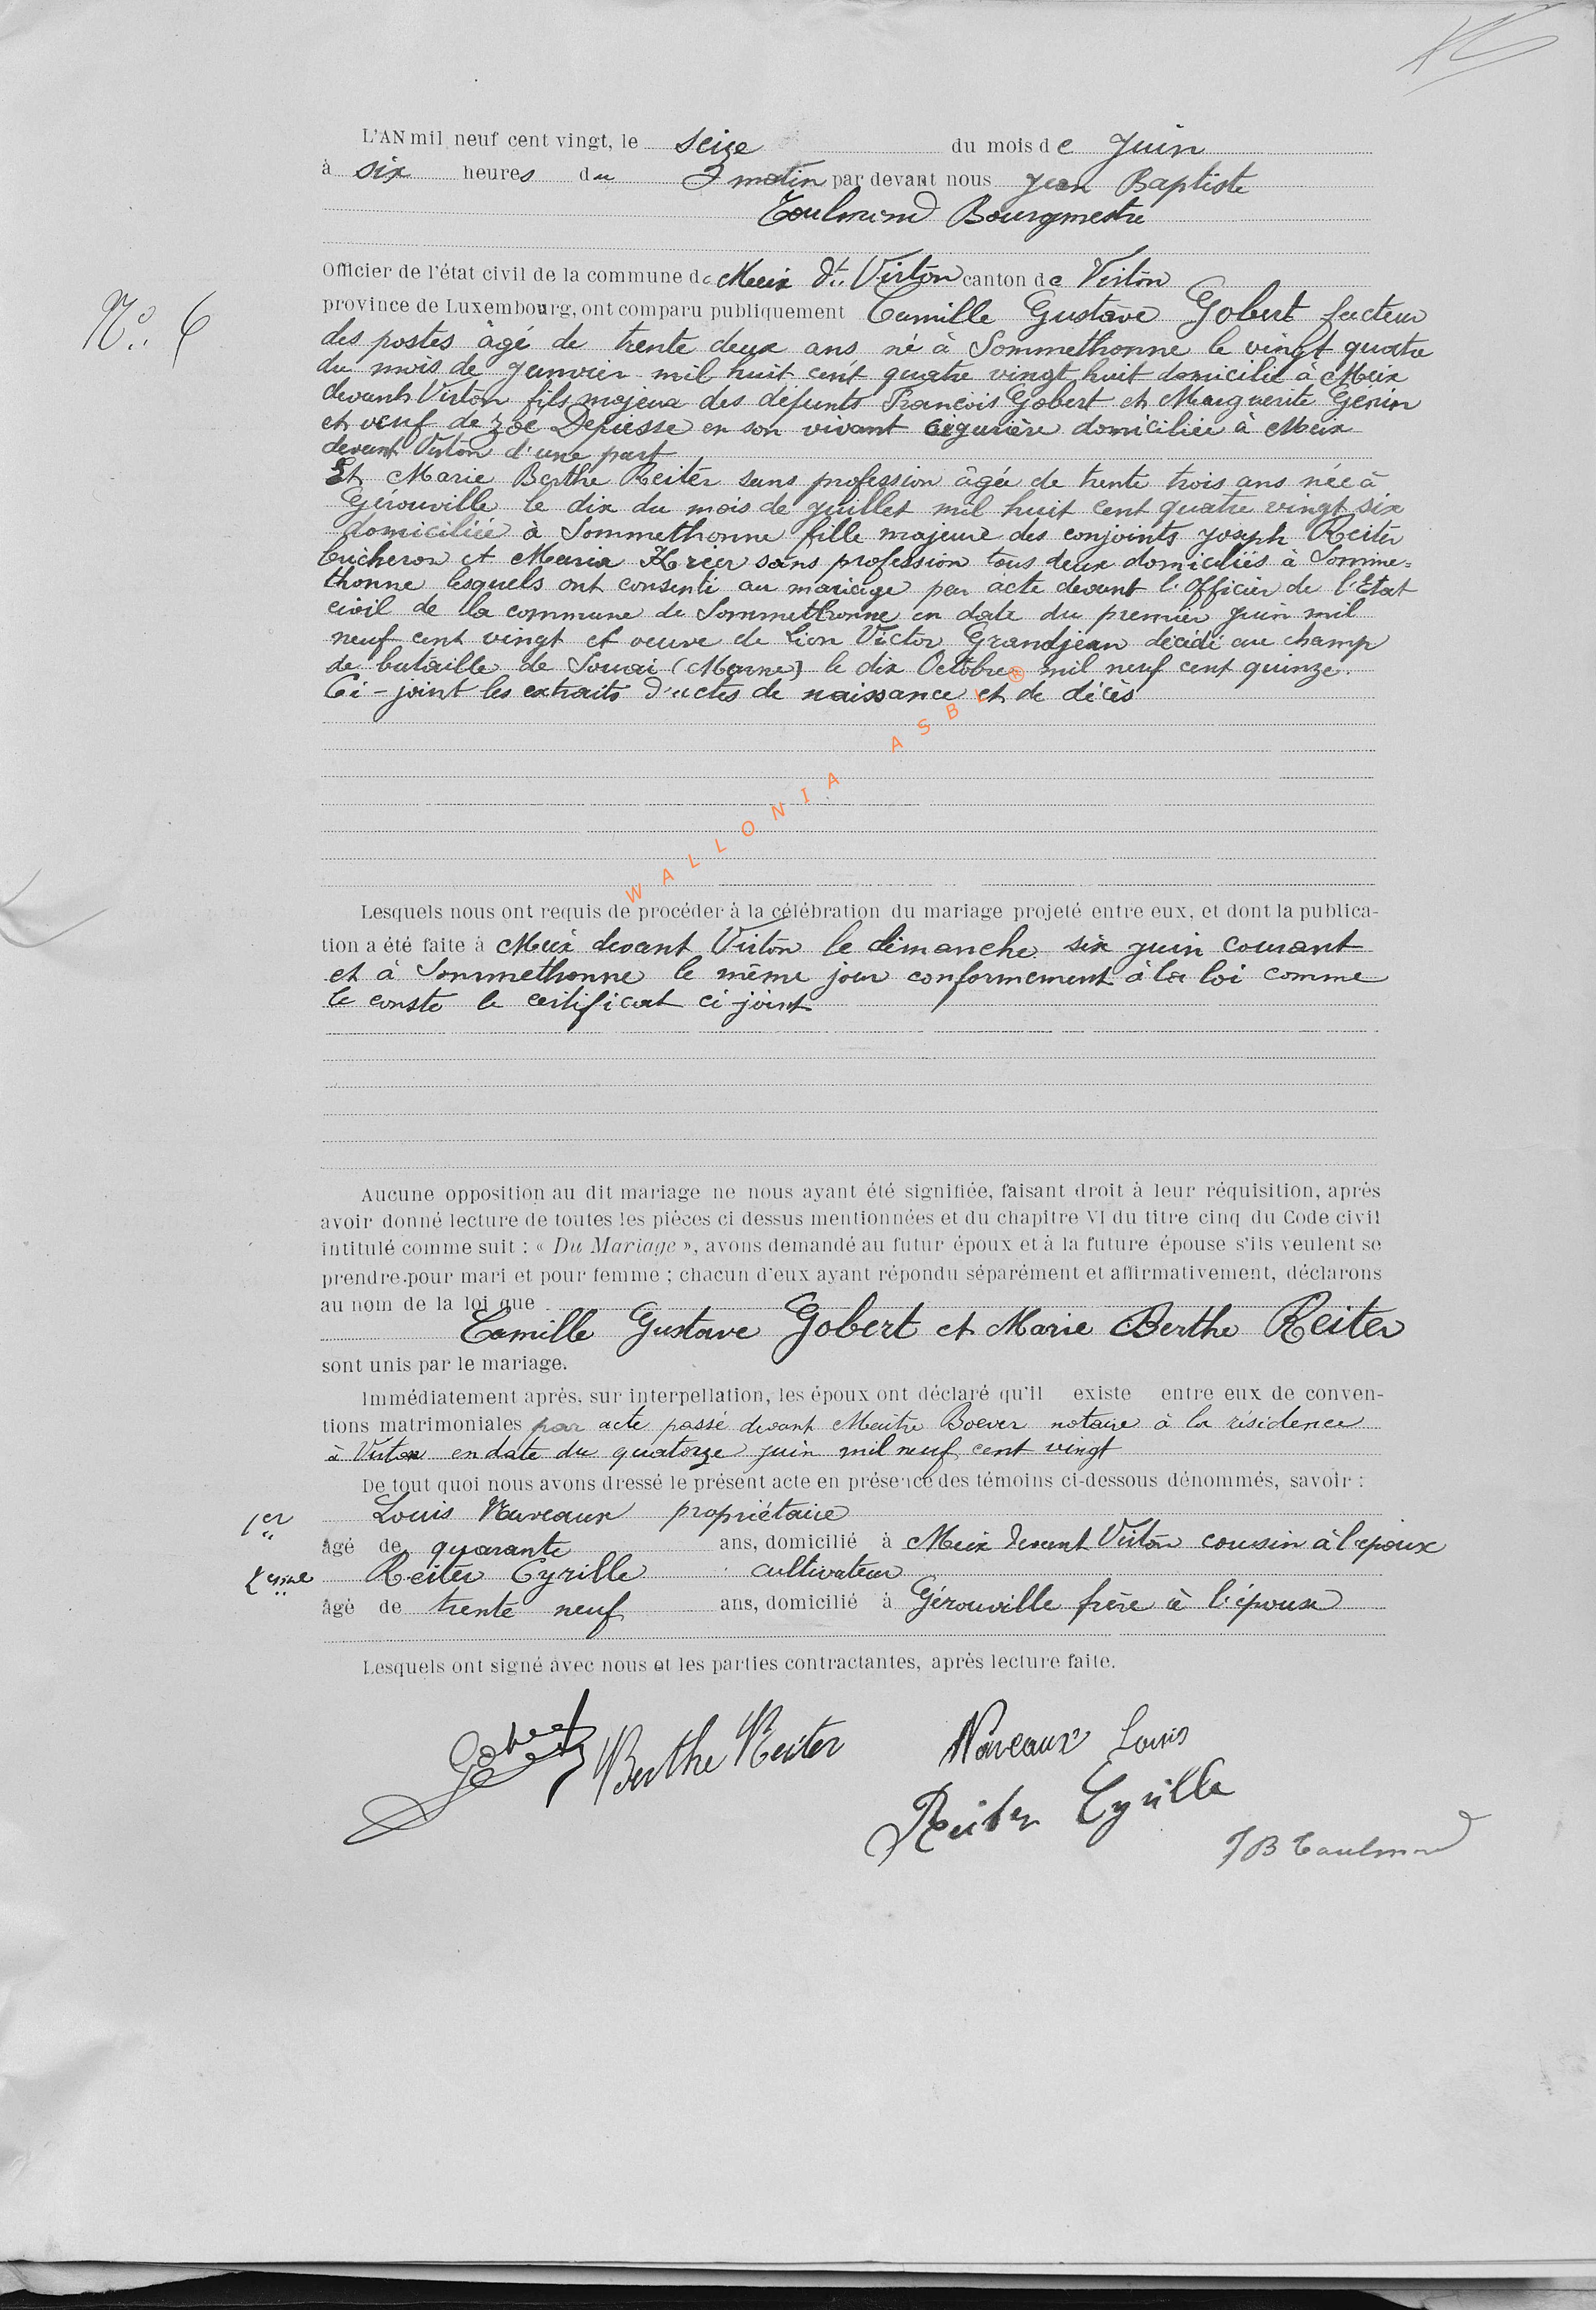 L'AN mil neuf cent vingt, le seize du mois de Juin
à six heures du matin par devant nous Jean Baptiste
Toulmond Bourgmestre
Officier de l'état civil de la commune de Meix dt. Virton canton de Virton
province de Luxembourg, ont comparu publiquement Camille Gustave Gobert facteur
N°. 6
des postes âgé de trente deux ans né à Sommethonne le vingt quatre
du mois de Janvier mil huit cent quatre vingt huit domicilié à Meix
devant Virton fils majeur des défunts François Gobert et Marguerite Génin
et veuf de Zoé Depiesse en son vivant cigarière domiciliée à Meix
devant Virton d'une part
Et Marie Berthe Reiter sans profession âgée de trente trois ans née à
Gérouville le dix du mois de juillet mil huit cent quatre vingt six
domiciliée à Sommethonne fille majeure des conjoints Joseph Reiter
bûcheron et Maria Krier sans profession tous deux domiciliés à Somme=
thonne lesquels ont consenti au mariage par acte devant l'Officier de l'Etat
civil de la commune de Sommethonne en date du premier juin mil
neuf cent vingt et veuve de Léon Victor Grandjean décédé au champ
de bataille de Souai (Marne) le dix Octobre mil neuf cent quinze.
Ci-joint les extraits d'actes de naissance et de décès
WALLONIA ASBL ®
Lesquels nous ont requis de procéder à la célébration du mariage projeté entre eux, et dont la publica-
tion a été faite à Meix devant Virton le dimanche six juin courant
et à Sommethonne le même jour conformement à la loi comme
le conste le certificat ci-joint
Aucune opposition au dit mariage ne nous ayant été signifiée, faisant droit à leur réquisition, après
avoir donné lecture de toutes les pièces ci dessus mentionnées et du chapitre VI du titre cinq du Code civil
intitulé comme suit : « Du Mariage », avons demandé au futur époux et à la future épouse s'ils veulent se
prendre pour mari et pour femme ; chacun d'eux ayant répondu séparément et affirmativement, déclarons
au nom de la loi que
Camille Gustave Gobert et Marie Berthe Reiter
sont unis par le mariage.
Immédiatement après, sur interpellation, les époux ont déclaré qu'il existe entre eux de conven-
tions matrimoniales par acte passé devant Maitre Boever notaire à la résidence
à Virton en date du quatorze juin mil neuf cent vingt
De tout quoi nous avons dressé le présent acte en présence des témoins ci-dessous dénommés, savoir :
1er Louis Naveaux propriétaire
âgé de quarante ans, domicilié à Meix devant Virton cousin à l'époux
2eme Reiter Cyrille cultivateur
âgé de trente neuf ans, domicilié à Gérouville frère à l'épouse
Lesquels ont signé avec nous et les parties contractantes, après lecture faite.
Gobert Berthe Reiter Naveaux Louis
Reiter Cyrille
JB Toulmond